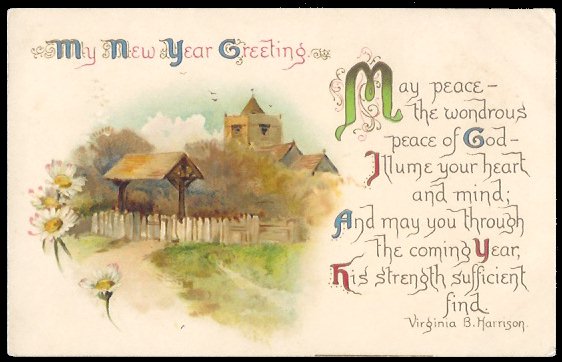 My New Year Greeting.
May peace—
the wondrous
peace of God—
Illume your heart
and mind;
And may you through
the coming Year,
His strength sufficient
find.
Virginia B. Harrison.